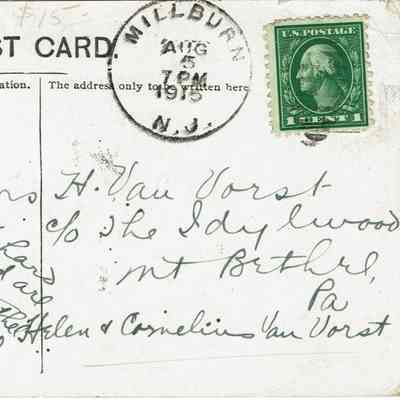 $15-
ST CARD.
MILLBURN
AUG
5
7 PM
1915
N.J.
U.S. POSTAGE
1 CENT 1
ation.
The address only to be written here
rs H. Van Vorst
c/o The Idylwood
Mt Bethel,
Pa
Helen & Cornelius Van Vorst
are